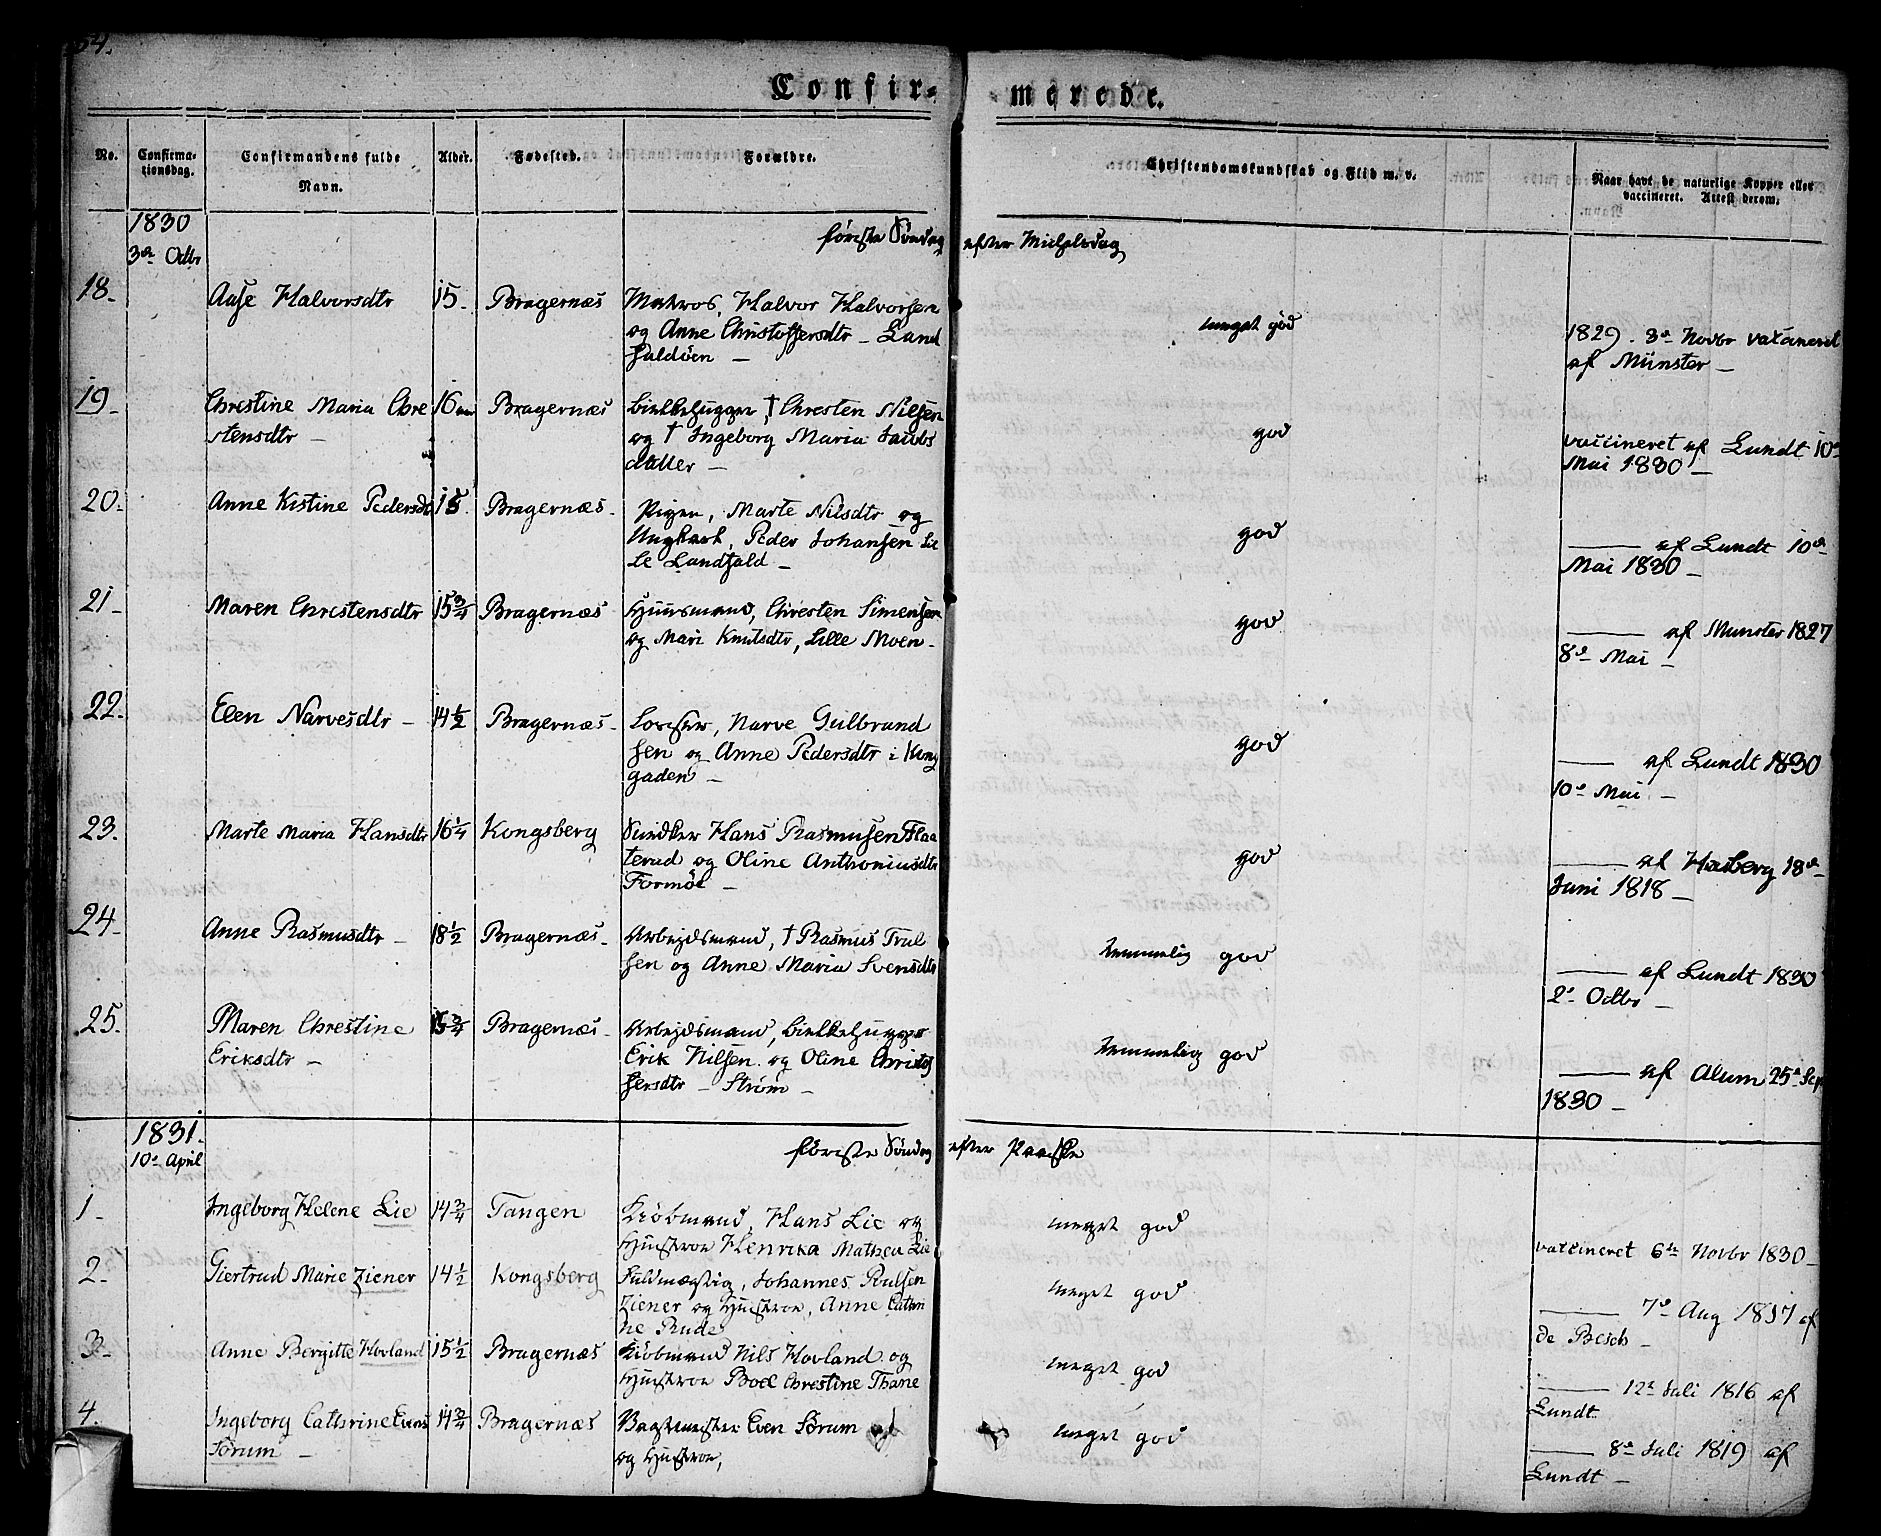 54.
Confir- merede.
No. Confirma-tionsdag. Confirmandens fulde Navn. Alder. Fødested. Forældre. Christendomskundskab og Flid m. v. Naar havt de naturlige Kopper eller vaccineret. Attest derom.
1830
3de Octbr første Søndag efter Michelsdag
18. Aase Halvorsdtr 15. Bragernæs Matros, Halvor Halvorsen meget god
og Anne Christoffersdtr - Land 1829. 3d Novbr vaccineret
faldøen - af Münster -
19. Christine Maria Chre 16 Bragernæs Bielkehugger † Chresten Nilsen
stensdtr - og † Ingeborg Maria Jacobs god vaccineret af Lundt 10d
datter - Mai 1830 -
20. Anne Kistine Pedersdt 15. Bragernæs. Pigen, Marte Nilsdtr og
Ungkarl, Peder Johansen Lil god —— af Lundt 10d
le Landfald - Mai 1830 -
21. Maren Chrestensdtr 15 3/4 Bragernæs Huusmand, Chresten Simensen god
og Mari Knutsdtr, Lille Moen - —— af Munster 1827
8d Mai -
22. Elen Narvesdtr - 14 1/2 Bragernæs - Narve Gulbrand
sen og Anne Pedersdtr i Kong god —— af Lundt 1830
gaden - 10d Mai -
23. Marte Maria Hansdtr 16 1/4 Kongsberg Snedker Hans Rasmusen Flaa
terud og Oline Anthoniusdtr god —— af Hasberg 18d
Formoe - Juni 1818 -
24. Anne Rasmusdtr - 18 1/2 Bragernæs - Arbejdsmand, † Rasmus Trul
sen og Anne Maria Svensdtr temmelig god —— af Lundt 1830
2d Octbr -
25. Maren Chrestine 15 3/4 Bragernæs - Arbejdsmand, Bielkehugger
Eriksdtr - Erik Nilsen og Oline Christof temmelig god
fersdtr - Strøm - —— af Alum 25d Sep
1830 -
1831.
10d April første Søndag efter Paaske
1. Ingeborg Helene Lie 14 3/4 Tangen Kiøbmand, Hans Lie og meget god
Hustroe Henrika Mathea Lie vaccineret 6te Novbr 1830 -
2. Giertrud Marie Ziener 14 1/2 Kongsberg Fuldmægtig, Johannes Poulsen
Ziener og Hustroe, Anne Cathri meget god —— 7d Aug 1817 af
ne Rude de Besch -
3. Anne Bergitte Hovland 15 1/2 Bragernæs Kiøbmand Nils Hovland og
Hustroe Boel Chrestine Thane meget god —— 12d Juli 1816 af
Lundt
4. Ingeborg Cathrine Evens 14 3/4 Bragernæs Even Sørum meget god
Sørum - og Hustroe, —— 8d Juli 1819 af
Lundt -